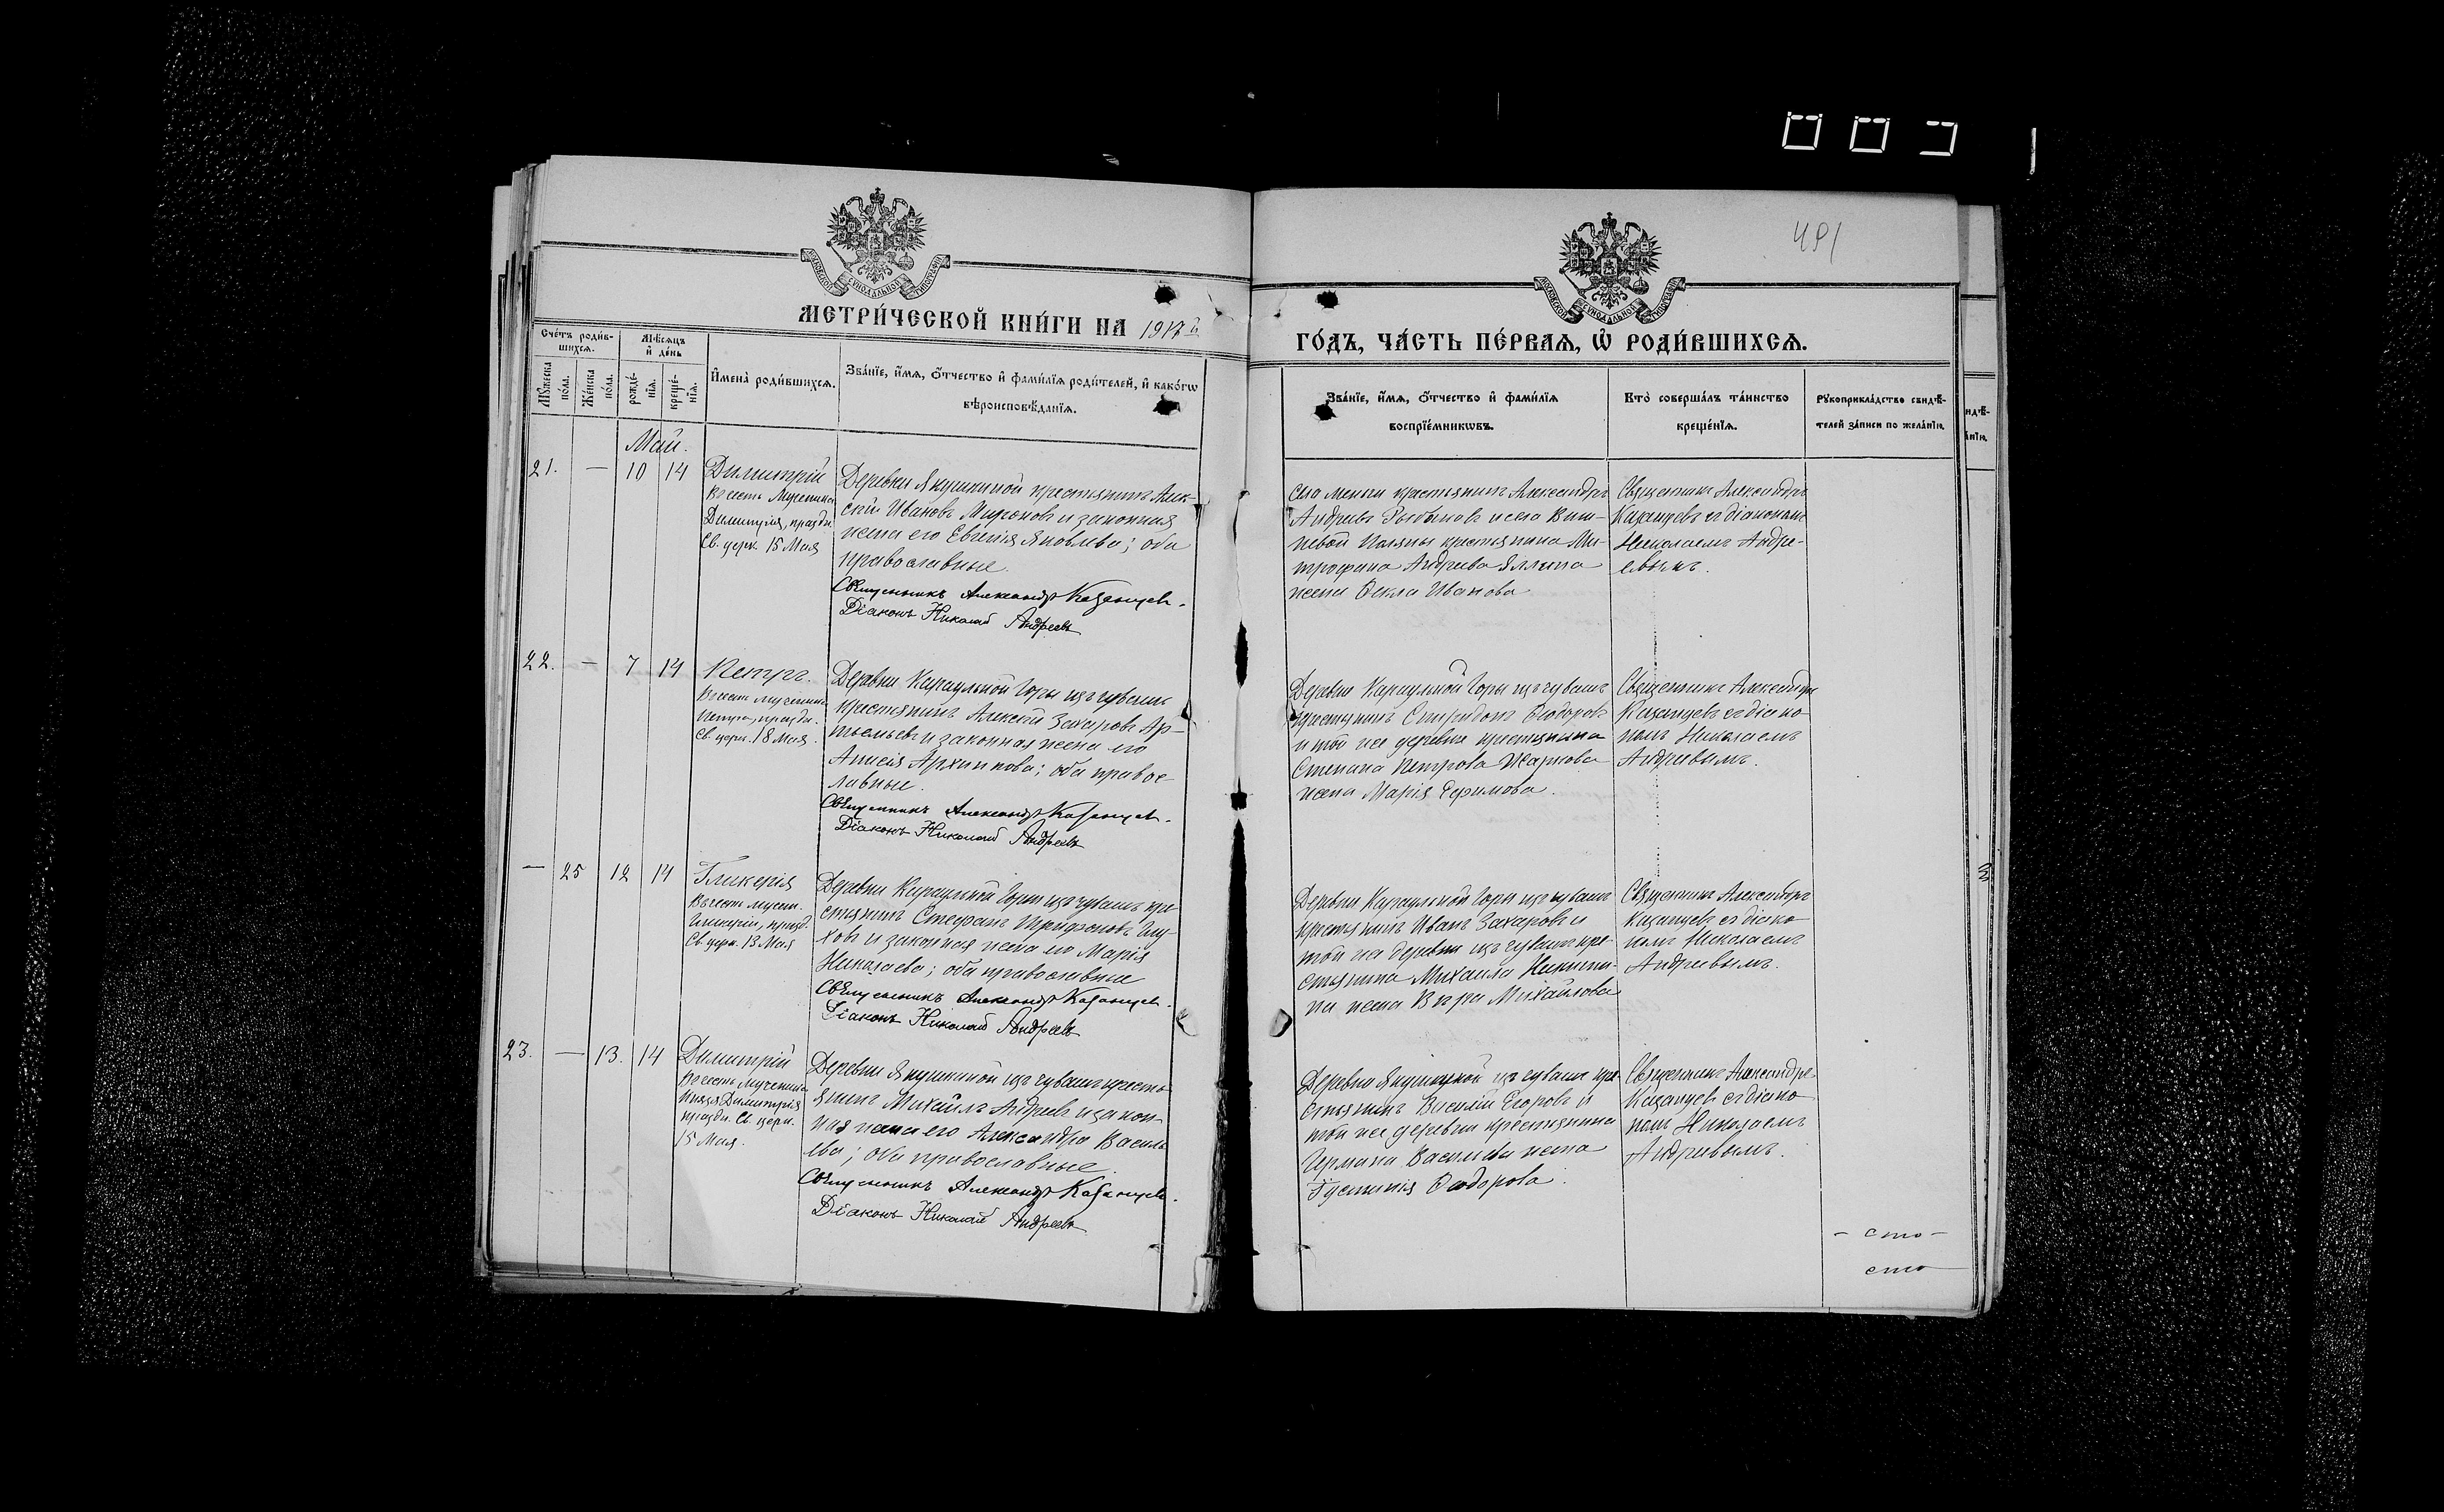 491
МОСКОВСКОЙ СУНОДАЛЬНОЙ ТИПОГРАФІИ
МОСКОВСКОЙ СУНОДАЛЬНОЙ ТИПОГРАФІИ
МЕТРИ́ЧЕСКОЙ КНИ́ГИ НА 1917й
ГО́ДЪ, ЧА́СТЬ ПЕ́РВАѦ, Ѡ҆ РОДИ́ВШИХСѦ.
Сче́тъ роди́в-
шихсѧ.
Мꙋ́жеска
по́ла.
Же́нска
по́ла.
Мѣ́сѧцъ
и҆ де́нь
рожде́-
нїѧ.
креще́-
нїѧ.
И҆мена̀ роди́вшихсѧ.
Зва́нїе, и҆́мѧ, ѻ҆́тчество и҆ фами́лїѧ роди́телей, и҆ како́гѡ
вѣроисповѣ́данїѧ.
Зва́нїе, и҆́мѧ, ѻ҆́тчество и҆ фами́лїѧ
воспрїе́мникѡвъ.
Кто̀ соверша́лъ та́инство
креще́нїѧ.
Рꙋкоприкла́дство свидѣ́-
телей за́писи по жела́нїю.
Май.
21. — 10 14
Димитрій
Въ честь Мученика
Димитрія, праздн.
Св. церк. 15 Мая
Деревни Якушкиной крестьянинъ Алек-
сѣй Ивановъ Мироновъ и законная
жена его Евгенія Яковлева; оба
православные.
Священникъ Александръ Казанцев.
Діаконъ Николай Андреевъ
крестьянинъ Александръ
Андреевъ и села Виш-
невой Поляны крестьянина Ми-
трофана Андреева
жена Ѳекла Иванова
Священникъ Александръ
Казанцевъ съ діакономъ
Николаемъ Андре-
евымъ.
22. — 7 14
Петръ.
Въ честь мученика
Петра, праздн.
Св. церк. 18 Мая.
Деревни Караульной Горы изъ чувашъ
крестьянинъ Алексѣй Захаровъ Ар-
темьевъ и законная жена его
Анисія Архипова; оба правос-
лавные.
Священникъ Александръ Казанцев.
Діаконъ Николай Андреевъ
Деревни Караульной Горы изъ чувашъ
крестьянинъ Спиридонъ Ѳеодоровъ
и той же деревни крестьянина
Степана Петрова Жаркова
жена Марія Ефимова.
Священникъ Александръ
Казанцевъ съ діако-
номъ Николаемъ
Андреевымъ.
— 25 12 14
Гликерія
Въ честь мучен.
Гликеріи, празд.
Св. церк. 13 Мая
Деревни Караульной Горы изъ чувашъ кре-
стьянинъ Стефанъ Трифоновъ Глу-
ховъ и законная жена его Марія
Николаева; оба православные
Священникъ Александръ Казанцев.
Діаконъ Николай Андреевъ
Деревни Караульной Горы изъ чувашъ
крестьянинъ Иванъ Захаровъ и
той же деревни изъ чувашъ кре-
стьянина Михаила Никити-
на жена Вѣра Михайлова
Священникъ Александръ
Казанцевъ съ діако-
номъ Николаемъ
Андреевымъ.
23. — 13. 14
Димитрій
Въ честь Мученика
Князя Димитрія
праздн. Св. церк.
15 Мая.
Деревни Якушкиной изъ чувашъ кресть-
янинъ Михаилъ Андреевъ и закон-
ная жена его Александра Василь-
ева; оба православные.
Священникъ Александръ Казанцев.
Діаконъ Николай Андреевъ
Деревни Якушкиной изъ чувашъ кре-
стьянинъ Василій Егоровъ и
той же деревни крестьянина
Германа Васильева жена
Іустинія Ѳеодорова.
Священникъ Александръ
Казанцевъ съ діако-
номъ Николаемъ
Андреевымъ.
- сто -
сто